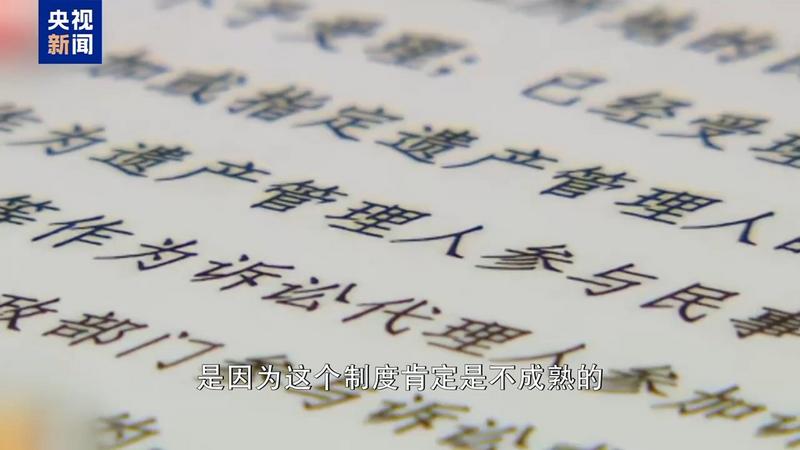 央视
新闻
受理；已经受理
加或指定遗产管理人的
作为遗产管理人参与民事
等作为诉讼代理人参加诉
政部门参与诉讼
是因为这个制度肯定是不成熟的